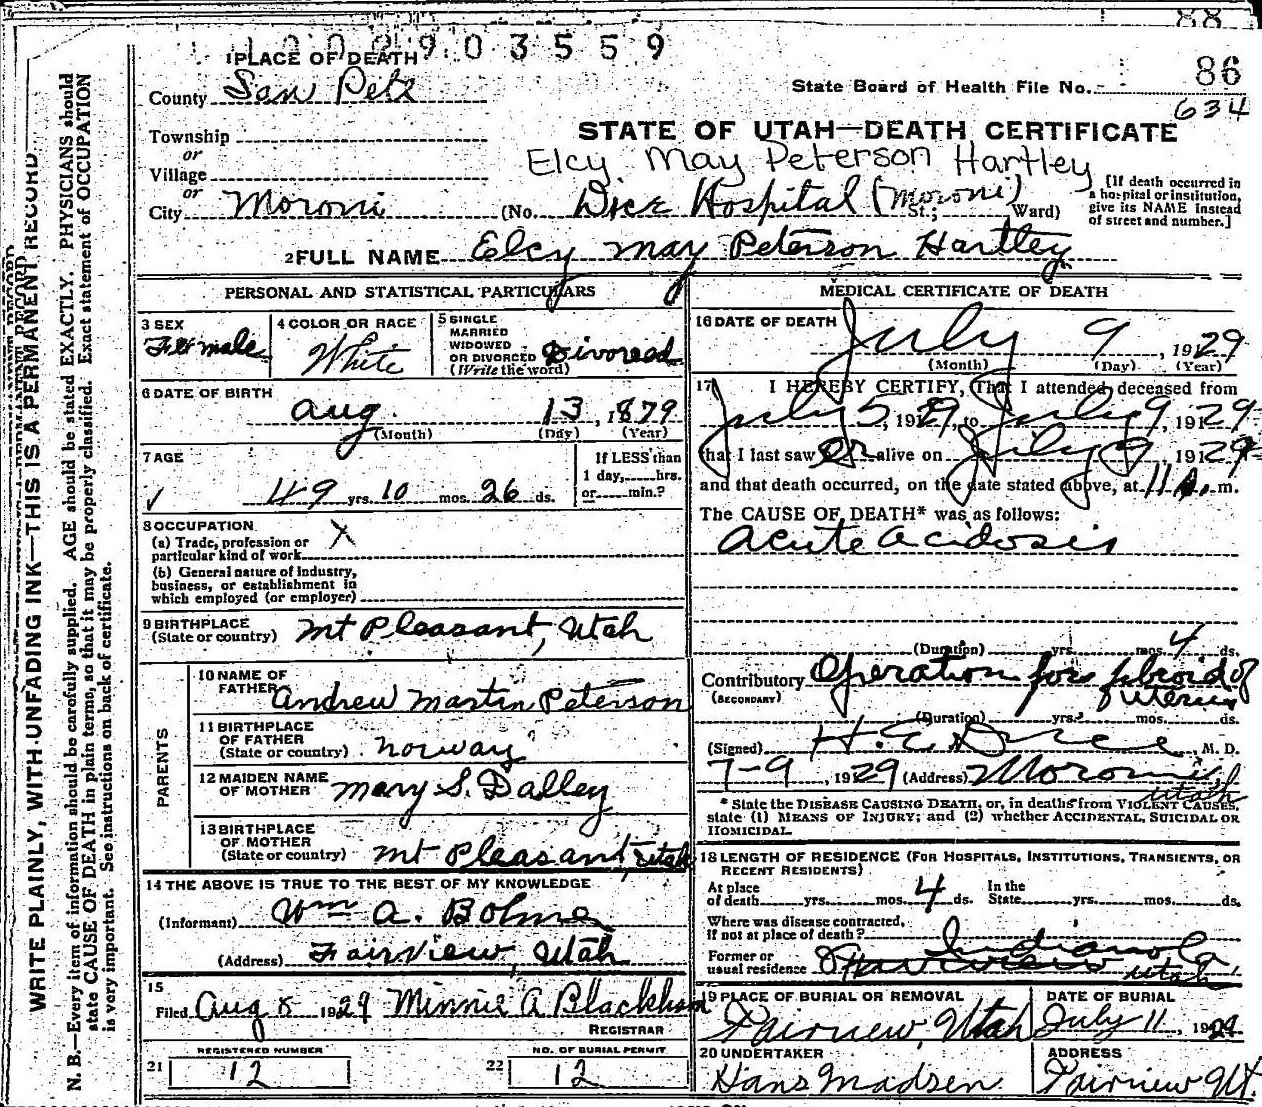 88
1 0 0 2 9 0 3 5 5 9
1 PLACE OF DEATH
County San Pete
Township
or
Village
or
City Moroni
State Board of Health File No. 86
634
STATE OF UTAH—DEATH CERTIFICATE
Elcy May Peterson Hartley
(No. Dice Hospital (Moroni) St.; Ward)
[If death occurred in
a hospital or institution,
give its NAME instead
of street and number.]
2 FULL NAME Elcy May Peterson Hartley
PERSONAL AND STATISTICAL PARTICULARS
3 SEX
Female
4 COLOR OR RACE
White
5 SINGLE
MARRIED
WIDOWED
OR DIVORCED
(Write the word)
Divorced
6 DATE OF BIRTH
Aug. 13, 1879
(Month) (Day) (Year)
7 AGE
✓ 49 yrs. 10 mos. 26 ds.
If LESS than
1 day, hrs.
or min.?
8 OCCUPATION
(a) Trade, profession or
particular kind of work X
(b) General nature of industry,
business, or establishment in
which employed (or employer)
9 BIRTHPLACE
(State or country) Mt Pleasant, Utah
PARENTS
10 NAME OF
FATHER Andrew Martin Peterson
11 BIRTHPLACE
OF FATHER
(State or country) Norway
12 MAIDEN NAME
OF MOTHER Mary S. Dalley
13 BIRTHPLACE
OF MOTHER
(State or country) Mt Pleasant, Utah
14 THE ABOVE IS TRUE TO THE BEST OF MY KNOWLEDGE
(Informant) Wm A. Bohne
(Address) Fairview, Utah
15
Filed Aug 8 1929 Minnie A Blackham
REGISTRAR
REGISTERED NUMBER
21 12
NO. OF BURIAL PERMIT
22 12
MEDICAL CERTIFICATE OF DEATH
16 DATE OF DEATH
July 9, 1929
(Month) (Day) (Year)
17 I HEREBY CERTIFY, That I attended deceased from
July 5, 1929, to July 9, 1929
that I last saw er alive on July 9 1929
and that death occurred, on the date stated above, at 11 A. m.
The CAUSE OF DEATH* was as follows:
Acute Acidosis
(Duration) yrs. mos. 4 ds.
Contributory Operation for fibroid of
(SECONDARY) uterus
(Duration) yrs. mos. ds.
(Signed) H. E. Dice, M. D.
7-9, 1929 (Address) Moroni
Utah
* State the DISEASE CAUSING DEATH, or, in deaths from VIOLENT CAUSES,
state (1) MEANS OF INJURY; and (2) whether ACCIDENTAL, SUICIDAL OR
HOMICIDAL
18 LENGTH OF RESIDENCE (FOR HOSPITALS, INSTITUTIONS, TRANSIENTS, OR
RECENT RESIDENTS)
At place
of death yrs. mos. 4 ds.
In the
State yrs. mos. ds.
Where was disease contracted,
If not at place of death?
Former or
usual residence Indianola
Fairview Utah
19 PLACE OF BURIAL OR REMOVAL
Fairview, Utah
DATE OF BURIAL
July 11, 1929
20 UNDERTAKER
Hans Madsen
ADDRESS
Fairview Ut.
WRITE PLAINLY, WITH UNFADING INK—THIS IS A PERMANENT RECORD
N. B.—Every item of information should be carefully supplied. AGE should be stated EXACTLY. PHYSICIANS should
state CAUSE OF DEATH in plain terms, so that it may be properly classified. Exact statement of OCCUPATION
is very important. See instructions on back of certificate.